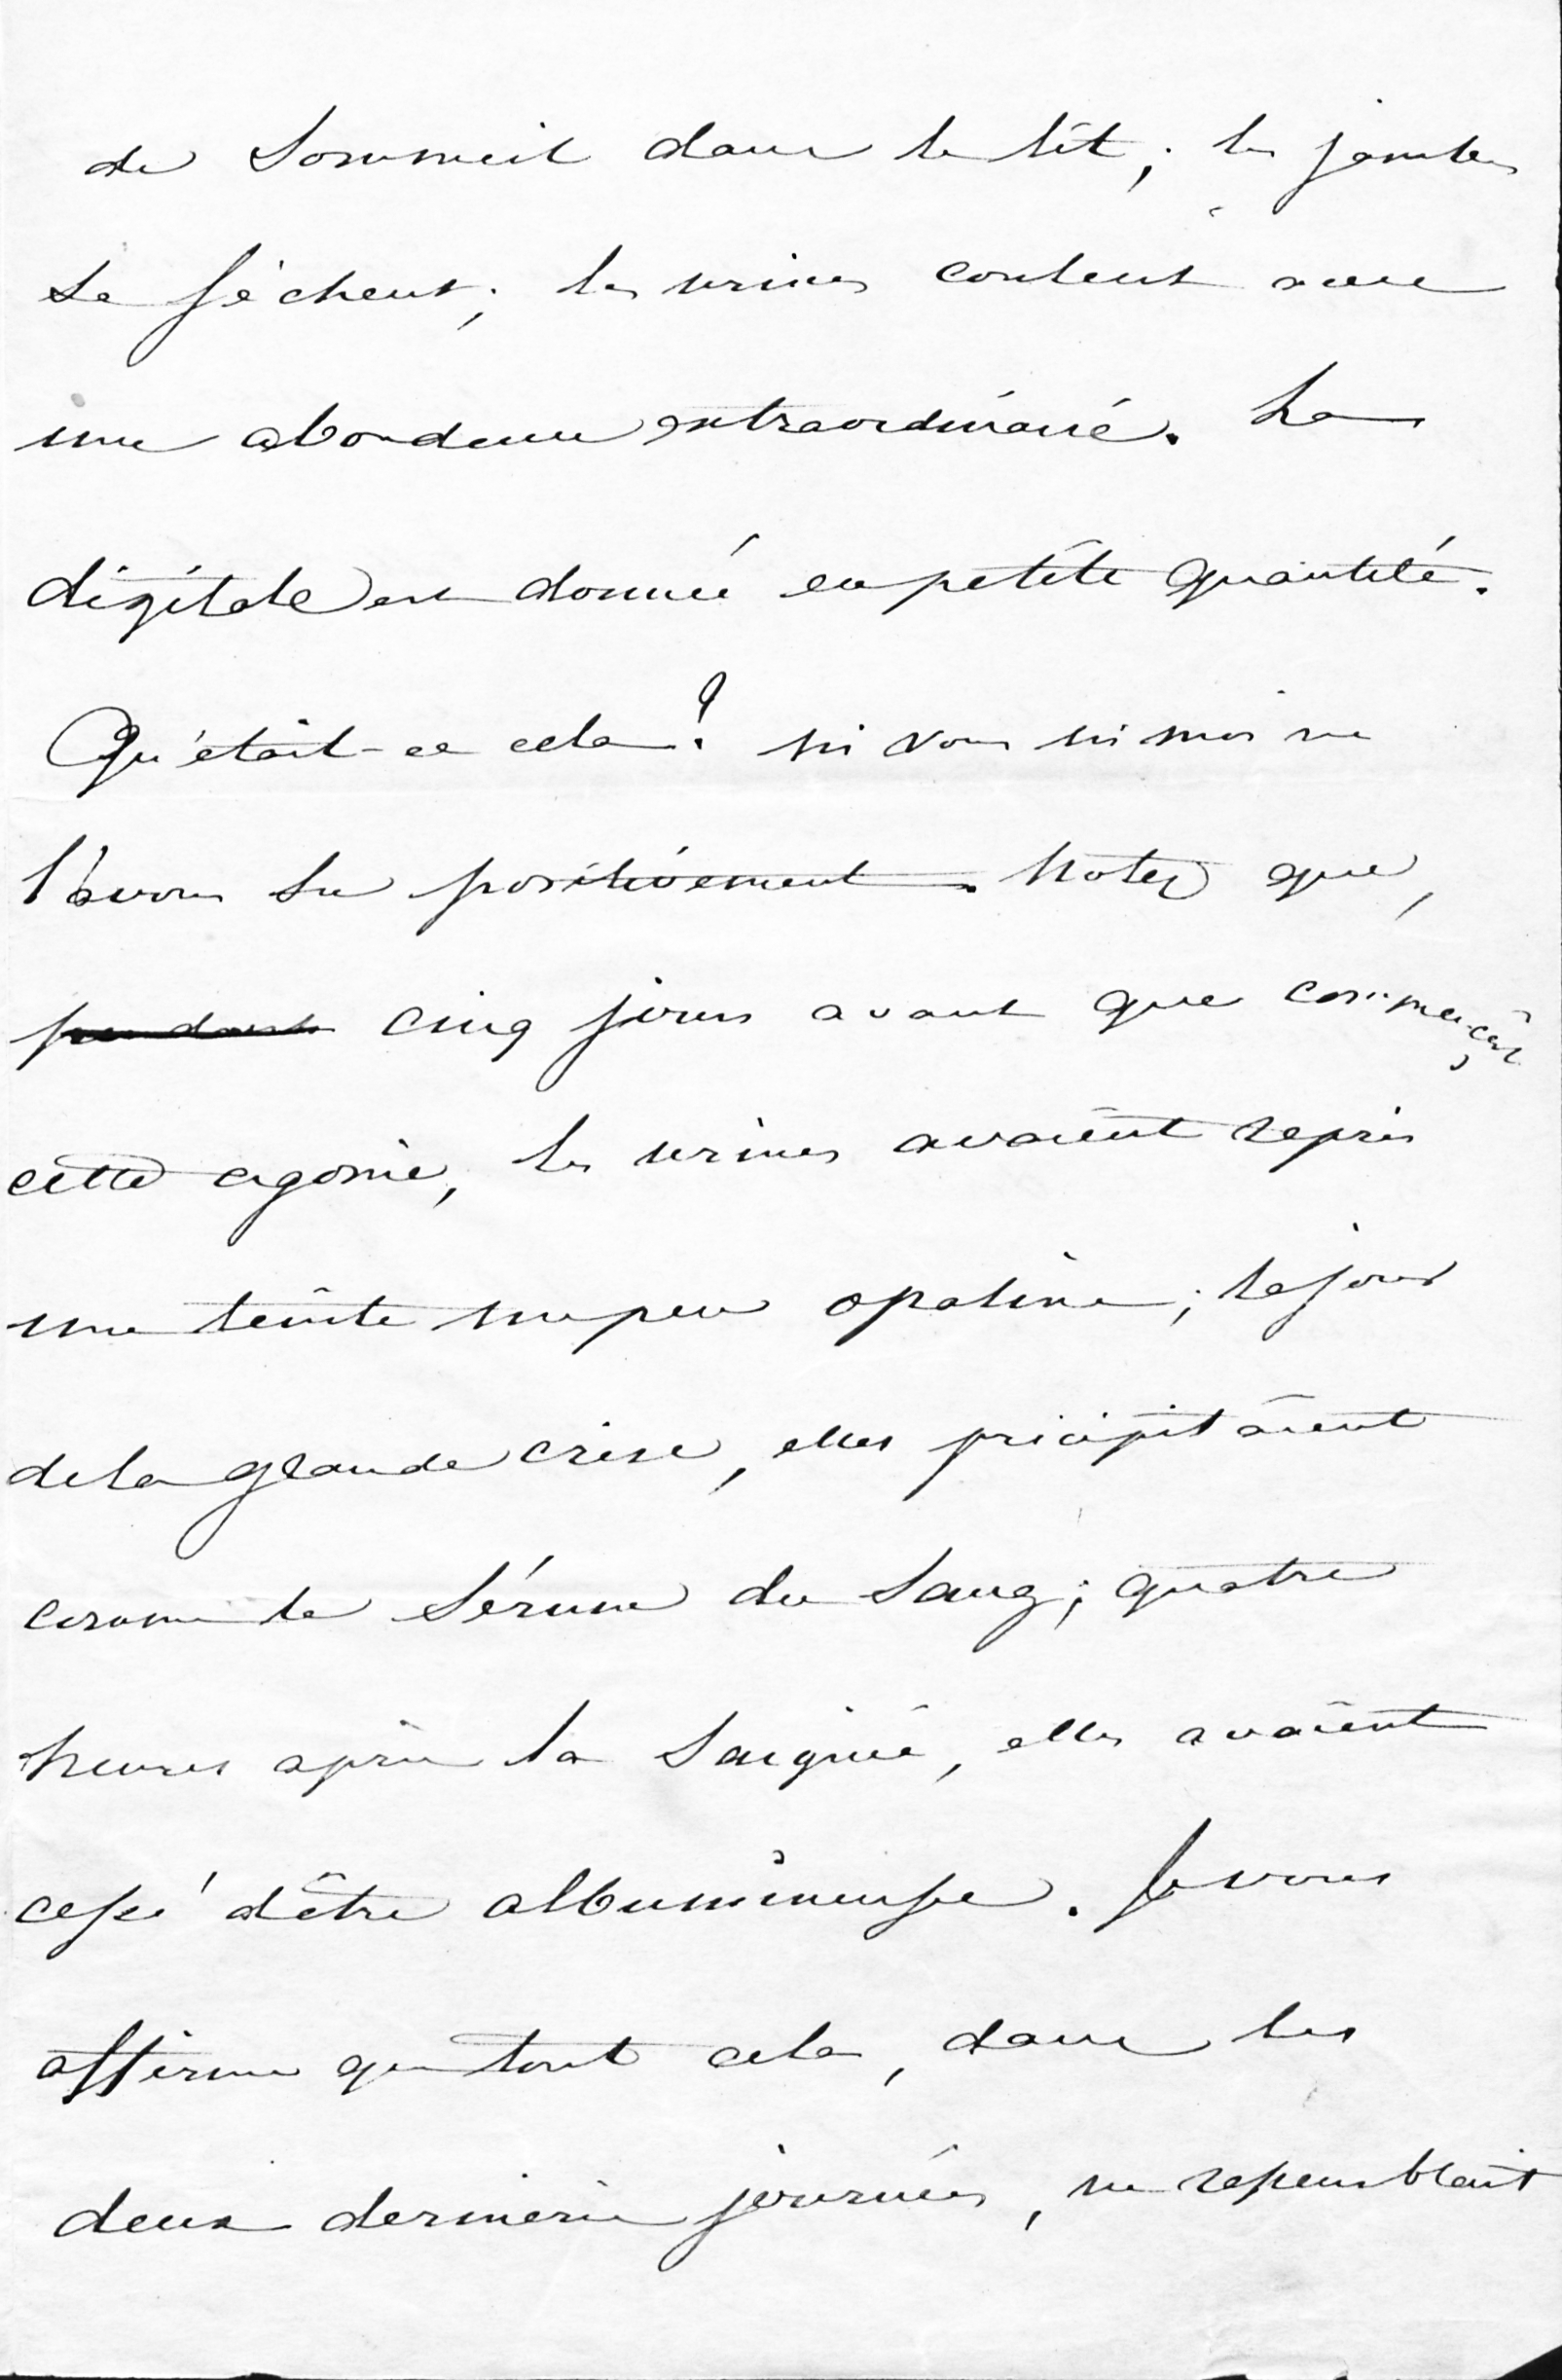 de sommeil dans le lit; les jambes
se sèchent; les urines coulent avec
une abondance extraordinaire. La
digitale est donnée en petite quantité.
Qu'était-ce cela? ni vous ni moi ne
l'avons su positivement. Notez que,
pendant cinq jours avant que commençât
cette agonie, les urines avaient repris
une teinte un peu opaline; le jour
de la grande crise, elles précipitaient
comme le sérum du sang; quatre
heures après la saignée, elles avaient
cessé d'être albumineuse. Je vous
affirme que tout cela, dans les
deux dernières journées, ne ressemblait